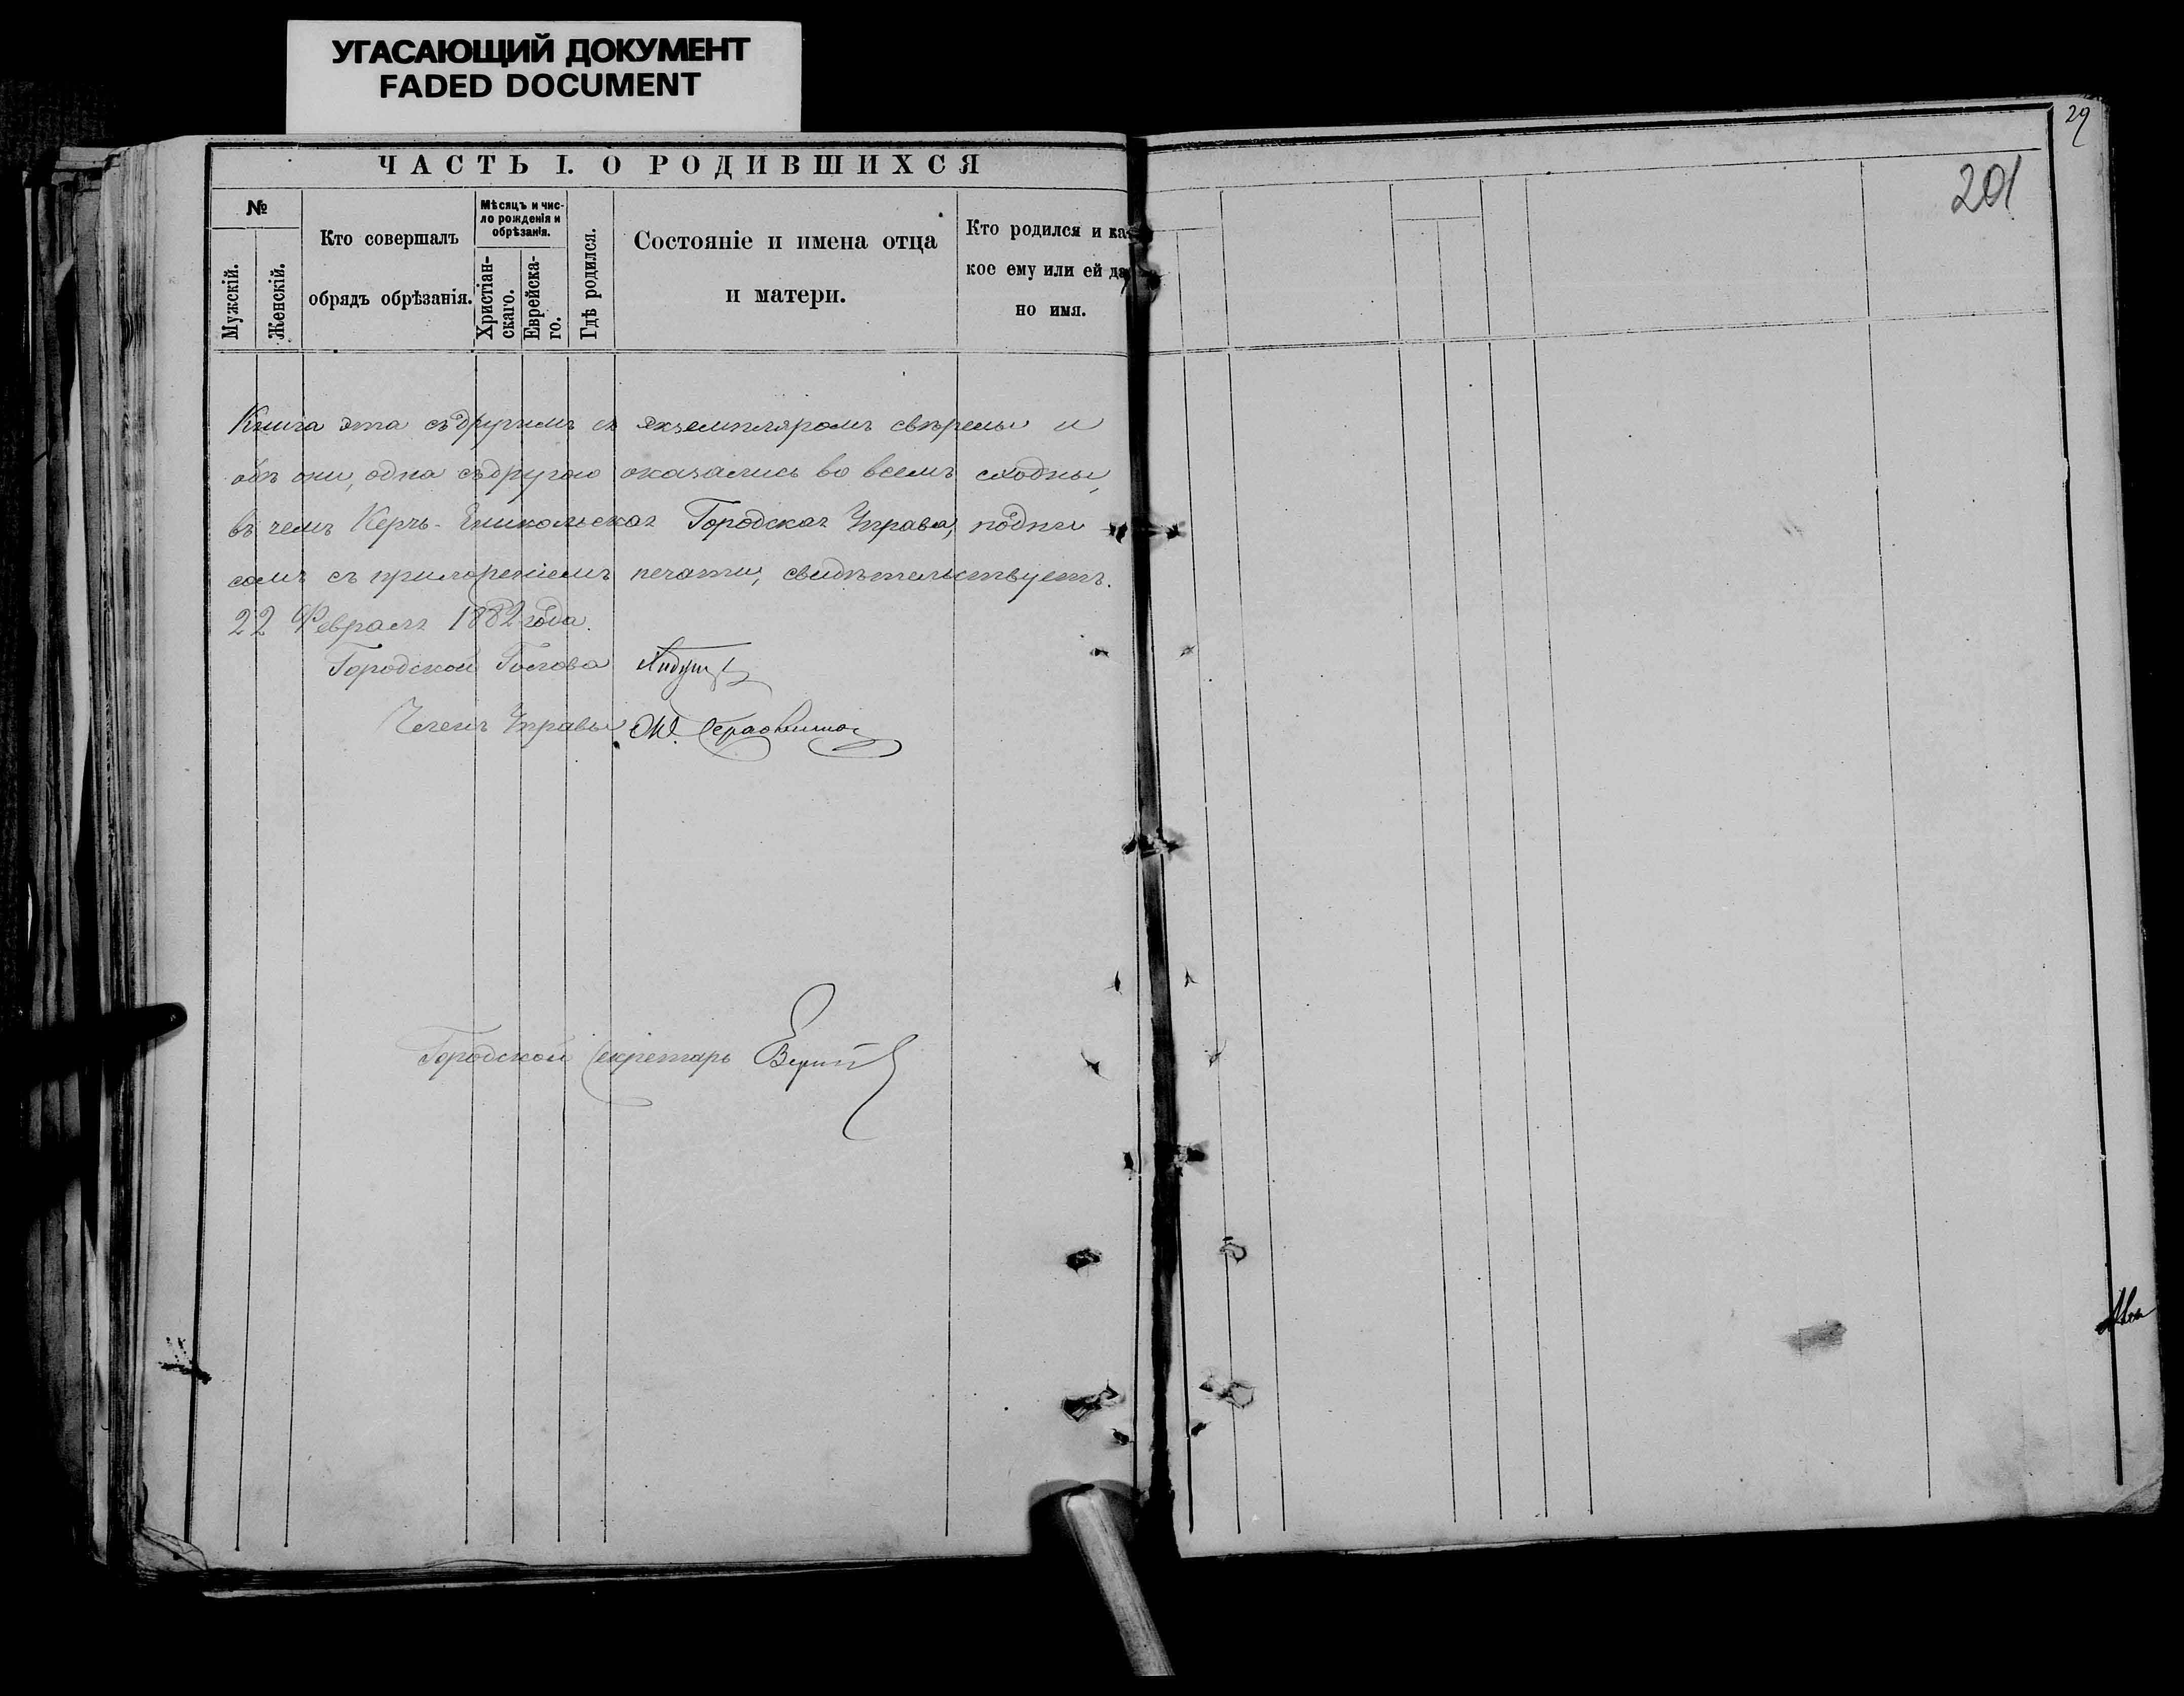 УГАСАЮЩИЙ ДОКУМЕНТ
FADED DOCUMENT
29
201
ЧАСТЬ I. О РОДИВШИХСЯ
№
Мужскій.
Женскій.
Кто совершалъ
обрядъ обрѣзанія.
Мѣсяцъ и чис-
ло рожденія и
обрѣзанія.
Христіан-
скаго.
Еврейска-
го.
Гдѣ родился.
Состояніе и имена отца
и матери.
Кто родился и ка-
кое ему или ей да
но имя.
Книга эта съ другимъ ея экземпляромъ свѣрены и
обѣ они, одна съ другою оказались во всемъ сходны,
въ чемъ Керчь-Еникольская Городская Управа, подпи
сомъ съ приложеніемъ печати, свидѣтельствуетъ.
22 Февраля 1882 года.
Городской Голова
Членъ Управы
Городской Секретарь